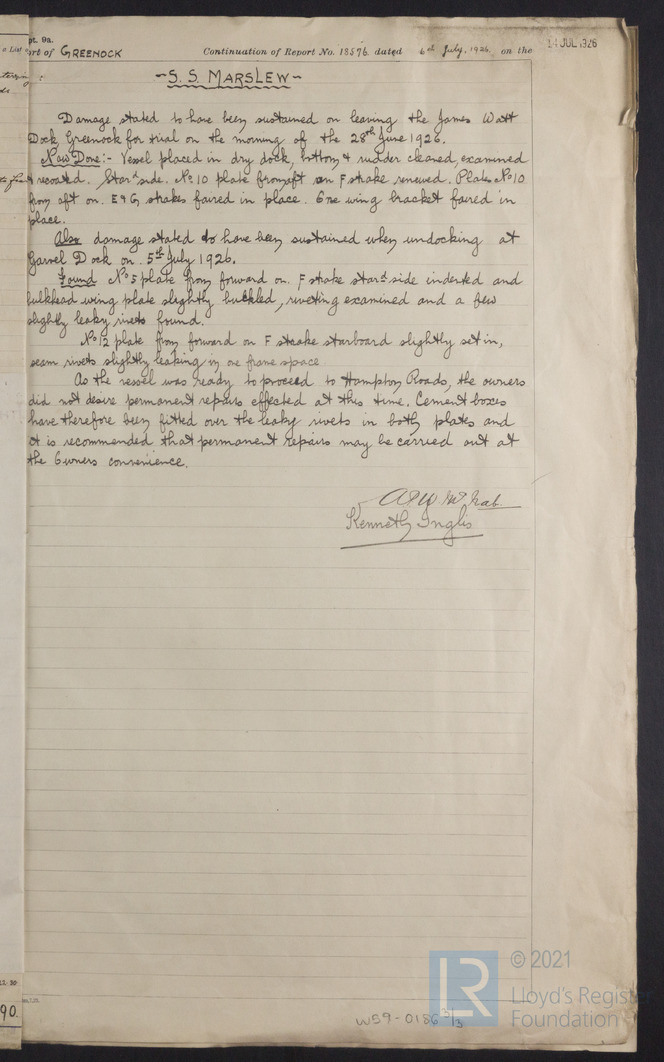 pt. 9a.
ort of GREENOCK Continuation of Report No. 18576 dated 6th July, 1926. on the
14 JUL 1926
a List
- S. S. MARSLEW -
Damage stated to have been sustained on leaving the James Watt
Dock Greenock for trial on the morning of the 28th June 1926.
Now Done:- Vessel placed in dry dock, bottom & rudder cleaned, examined
& recoated. Stard side. No. 10 plate from aft on F strake renewed. Plates No 10
from aft on. E & G strakes faired in place. One wing bracket faired in
place.
Also damage stated to have been sustained when undocking at
Garvel Dock on. 5th July 1926.
Found No 5 plate from forward on. F strake stard side indented and
bulkhead wing plate slightly buckled, riveting examined and a few
slightly leaky rivets found.
No 12 plate from forward on F strake starboard slightly set in,
seam rivets slightly leaking in one frame space
As the vessel was ready to proceed to Hampton Roads, the owners
did not desire permanent repairs effected at this time. Cement boxes
have therefore been fitted over the leaky rivets in both plates and
it is recommended that permanent repairs may be carried out at
the Owners convenience.
Kenneth Inglis
90.
W59-0186 3/3
LR
© 2021
Lloyd's Register
Foundation